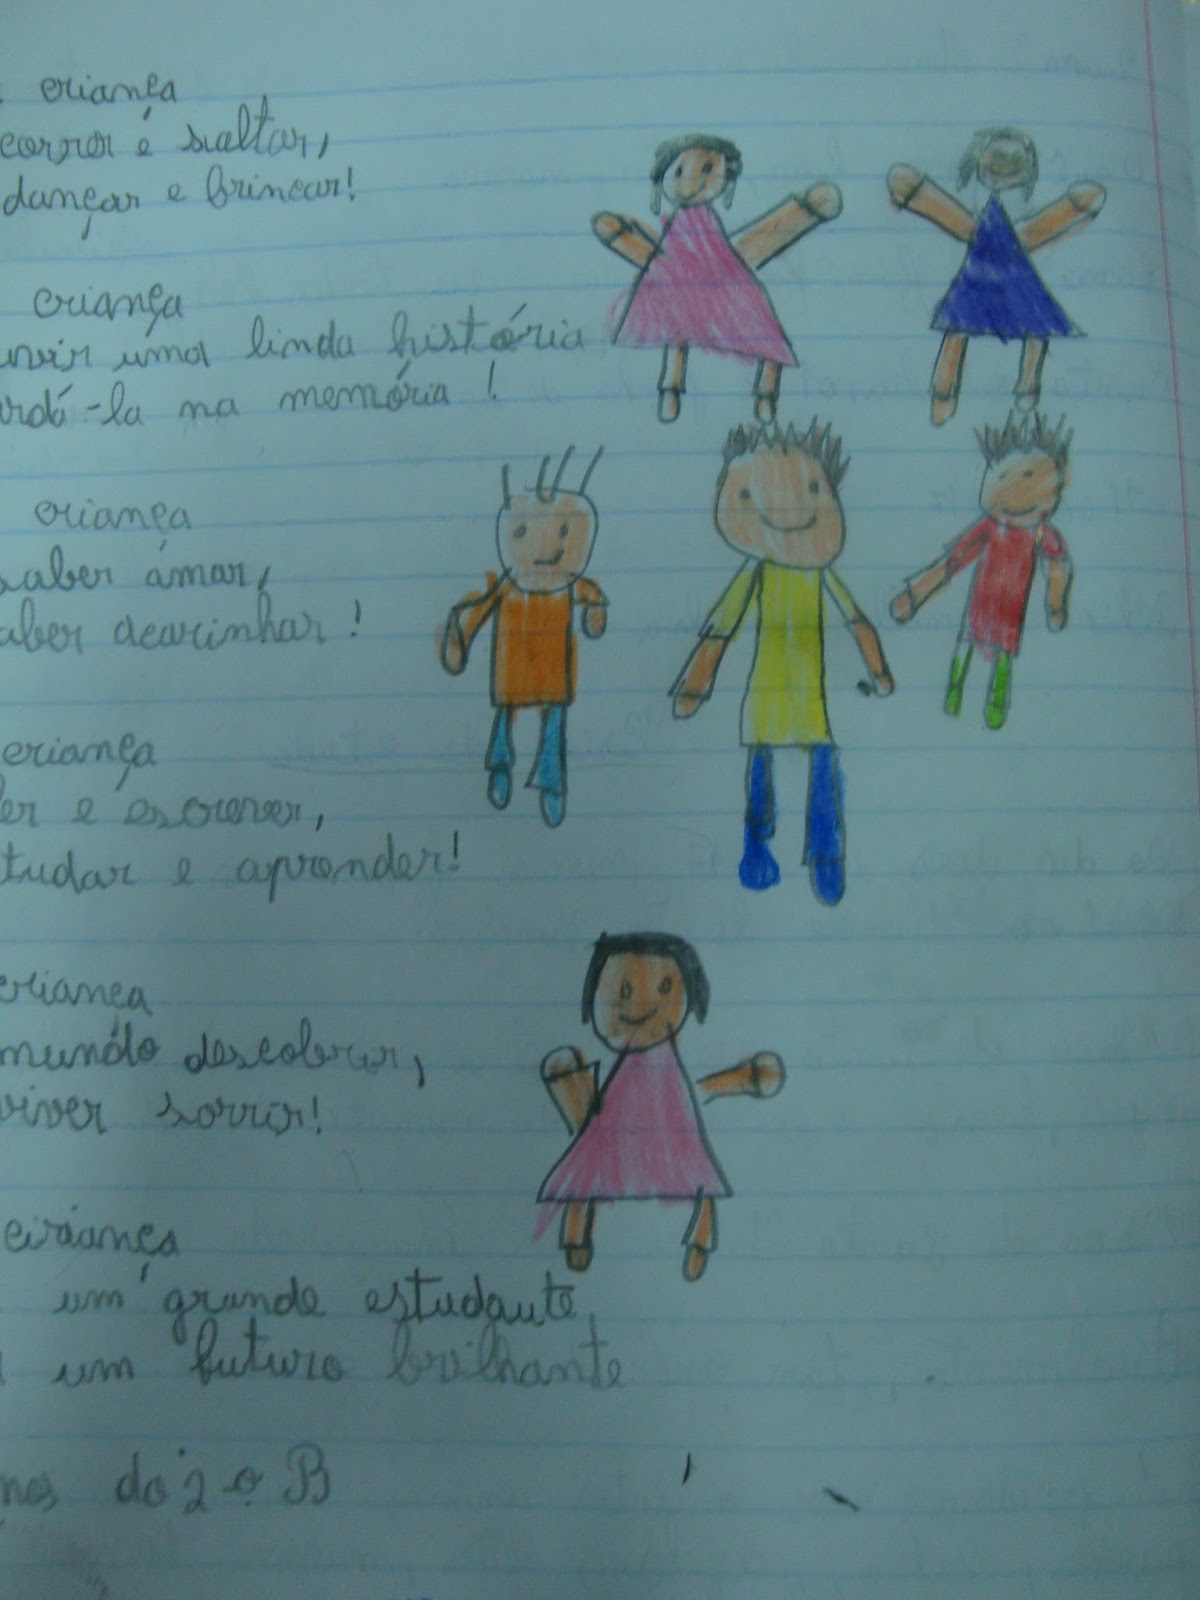 criança
correr é saltar,
dançar e brincar!
criança
uvir uma linda história
ardá-la na memória!
criança
saber amar,
aber acarinhar!
criança
ler e escrever,
tudar e aprender!
criança
mundo descobrir,
viver sorrir!
criança
um grande estudante,
um futuro brilhante
nos do 2º B